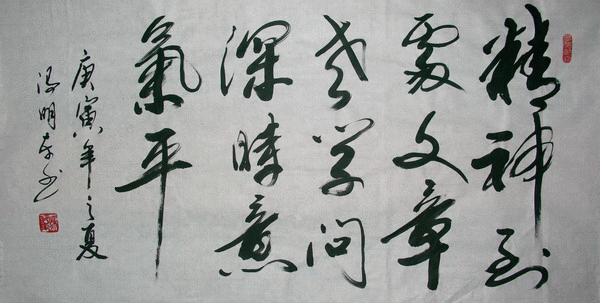 精神到
處文章
老学问
深時意
氣平
庚寅年之夏
明
书